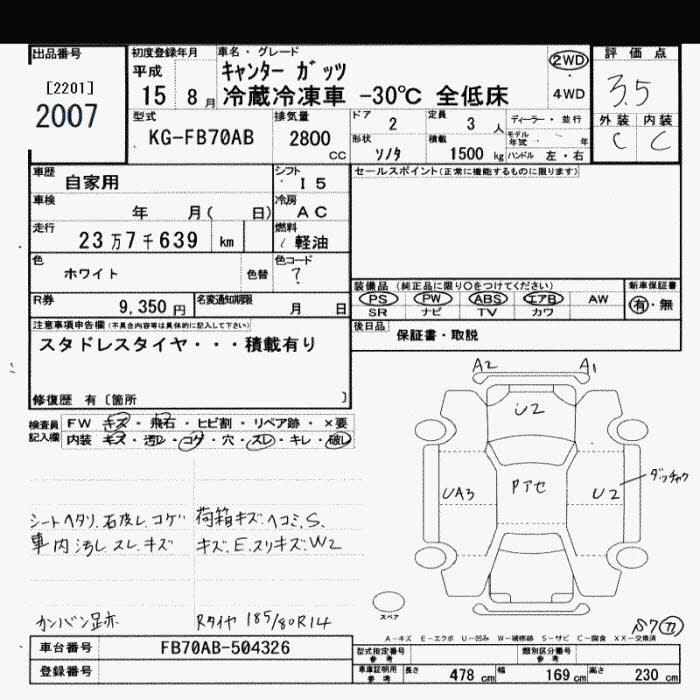 出品番号
[2201]
2007
初度登録年月
平成
15 8月
車名・グレード
キャンター ガッツ
冷蔵冷凍車 -30℃ 全低床
2WD
4WD
評価点
3.5
外装 内装
C C
型式
KG-FB70AB
排気量
2800 cc
ドア 2
定員 3 人
ディーラー・並行
モデル年式 ・ 年
形状 ソノタ
積載 1500 kg
ハンドル 左・右
車歴
自家用
シフト
I 5
車検
年 月( 日)
冷房
AC
走行
23万7千639 km
燃料
軽油
色
ホワイト
色替
色コード
?
R券
9,350円
名変通知期限
月 日
セールスポイント(正常に機能するものに限ります)
装備品 (純正品に限り○をつけてください)
PS PW ABS エアB AW
SR ナビ TV カワ
新車保証書
有・無
後日品
保証書・取説
注意事項申告欄(不具合内容等は具体的に記入して下さい)
スタドレスタイヤ・・・積載有り
修復歴 有〔箇所 〕
検査員記入欄
FW キズ・飛石・ヒビ割・リペア跡・×要
内装 キズ・汚レ・コゲ・穴・スレ・キレ・破レ
シートヘタリ、石皮レ、コゲ
車内汚レ、スレ、キズ
カンバン足亦
荷箱キズ、ヘコミ、S、
キズ、E、スリキズ、W2
Rタイヤ 185/80R14
A2 A1
U2
UA3
Pアセ
U2
ダッチャク
スペア
A-キズ E-エクボ U-凹み W-補修跡 S-サビ C-腐食 XX-交換済
車台番号
FB70AB-504326
登録番号
型式指定番号
参考
類別区分番号
参考
車庫証明用
参考
長さ 478 cm
幅 169 cm
高さ 230 cm